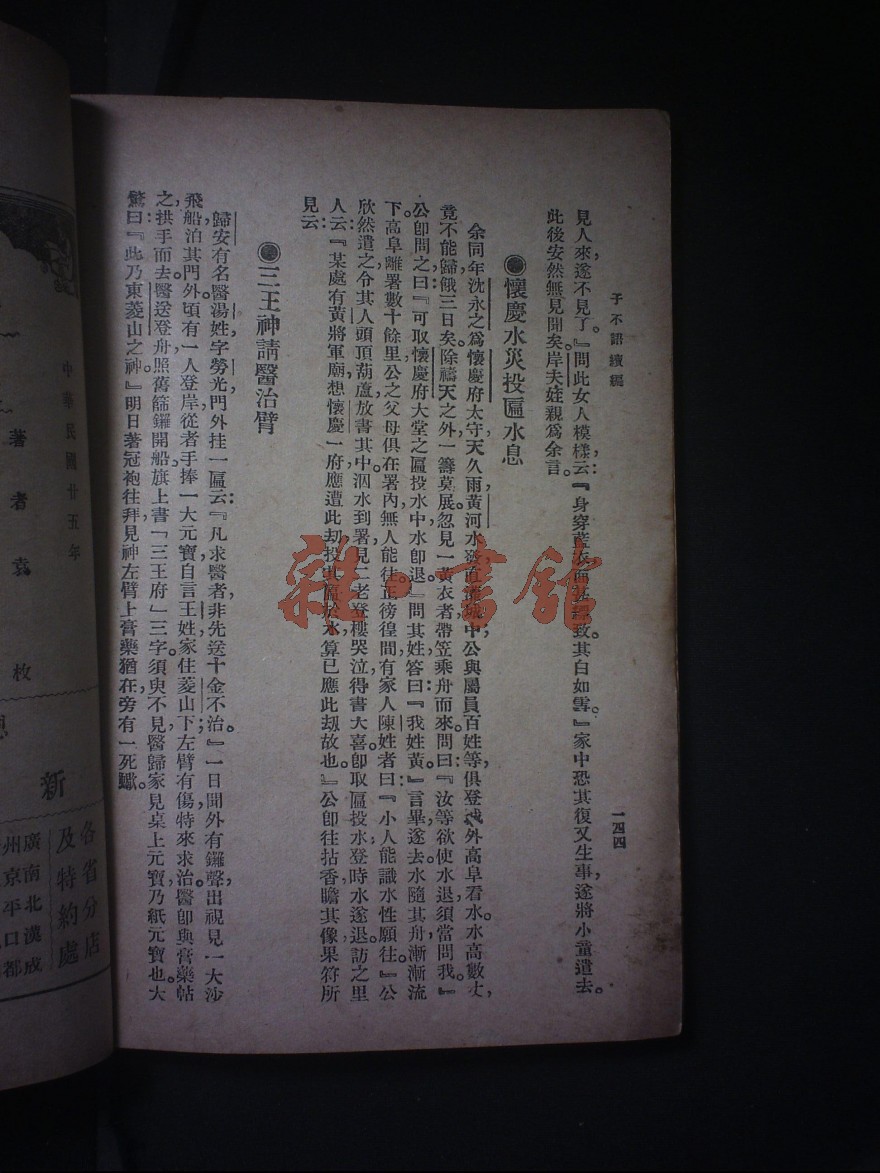 子不語續編
一四四
見人來遂不見了。』問此女人模樣云：『身穿藍衣而甚標致。其白如雪。』家中恐其復又生事，遂將小童遣去。
此後安然無見聞矣。岸夫姪親爲余言。
●懷慶水災投匾水息
余同年沈永之爲懷慶府太守，天久雨，黃河水發，直灌城中。公與屬員百姓等，俱登城外高阜看水。水高數丈，
竟不能歸，餓三日矣。除禱天之外，一籌莫展。忽見一黃衣者帶笠乘舟而來，問曰：『汝等欲使水退，須當問我。』
公卽問之。曰：『可取懷慶府大堂之匾投水中，水卽退。』問其姓，答曰：『我姓黃。』言畢遂去，水隨其舟漸漸流
下。高阜離署數十餘里，公之父母俱在署內，無人能往。正徬徨間，有家人陳姓者曰：『小人能識水性，願往。』公
欣然遣之。令其人頭頂葫蘆，放書其中，泅水到署，見二老登樓哭泣，得書大喜，卽取匾投水，登時水遂退。訪之里
人云：『某處有黃將軍廟，想懷慶一府應遭此劫，投其匾於水，算已應此刼故也。』公卽往拈香，瞻其像，果符所
見云。
●三王神請醫治臂
歸安有名醫湯姓字勞光，門外挂一匾云：『凡求醫者，非先送十金不治。』一日聞外有鑼聲，出視見一大沙
飛船泊其門外。頃有一人登岸，從者手捧一大元寶，自言王姓，家住菱山下，左臂有傷，特來求治。醫卽與膏藥帖
之，拱手而去。醫送登舟，照舊篩鑼開船，旗上書「三王府」三字，須臾不見。醫歸家見桌上元寶，乃紙元寶也。大
驚曰：『此乃東菱山之神。』明日著冠袍往拜，見神左臂上膏藥猶在，旁有一死蠍。
中華民國廿五年
著者袁枚
新
各省分店
及特約處
廣南北漢成
州京平口都
雜·書館